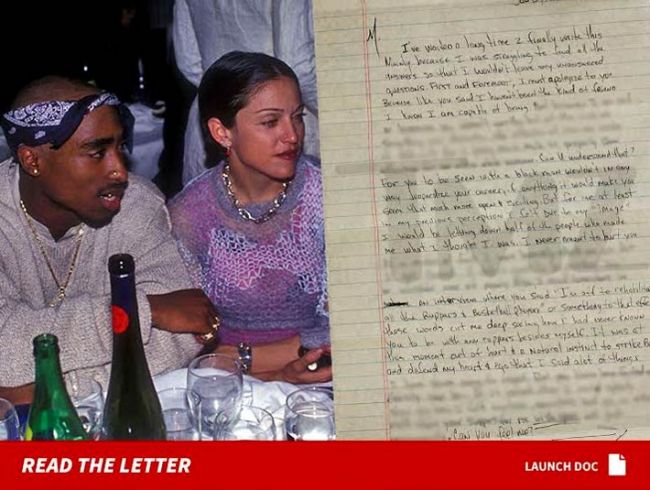 M.
I've waited a long time 2 finally write this
Mainly because I was struggling to find all the
answers so that I wouldn't leave any unanswered
questions. First and Foremost, I must apologize to you
Because like you said I haven't been the kind of friend
I know I am capable of being
Can U understand that?
For you to be seen with a black man wouldn't in any
way jeopardize your career, if anything it would make you
seem that much more open & exciting. But for me at least
in my previous perception I felt due to my "image"
I would be letting down half of the people who made
me what I thought I was. I never meant to hurt you
an interview where you said "I'm off to rehabilitate
all the Rappers & Basketball players" or something to that effect
those words cut me deep seeing how I had never known
you to be with any rappers besides myself. It was at
this moment out of hurt & a Natural instinct to strike Back
and defend my heart & ego that I said alot of things
Can you feel me?
READ THE LETTER
LAUNCH DOC